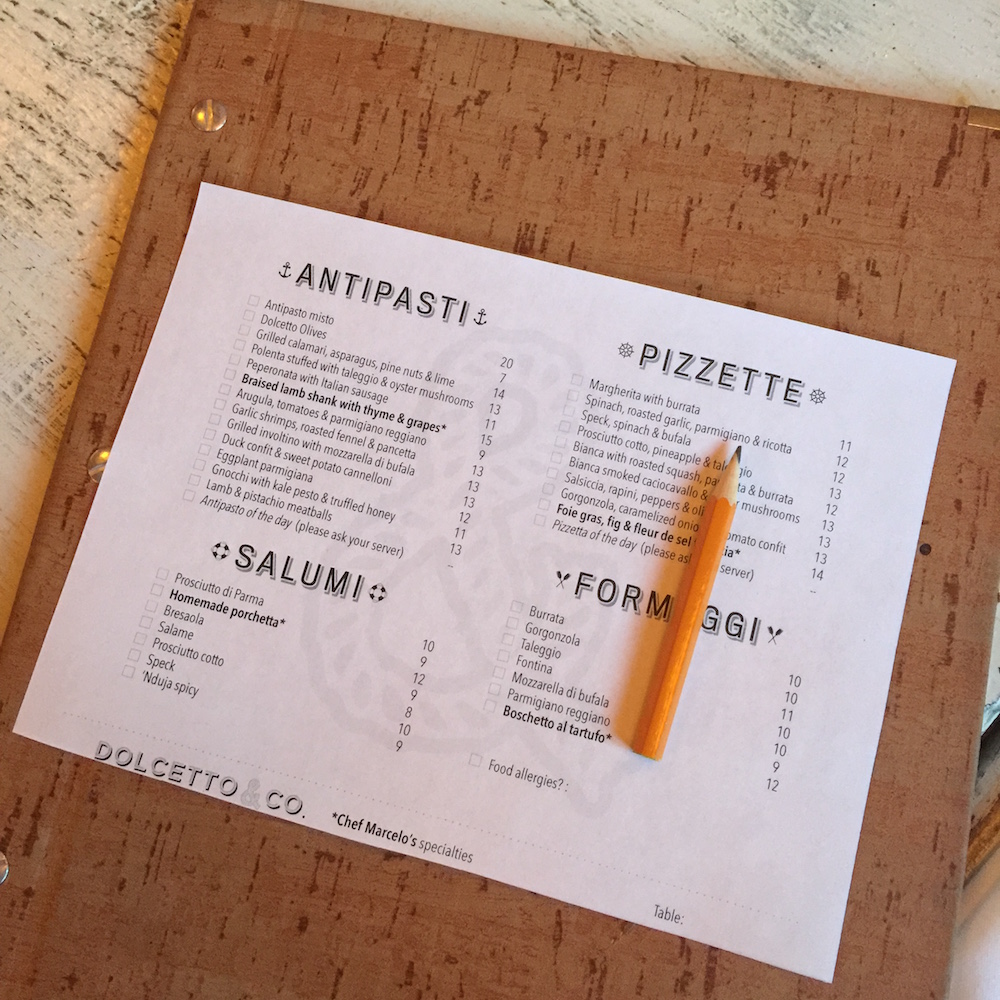 ANTIPASTI
Antipasto misto 20
Dolcetto Olives 7
Grilled calamari, asparagus, pine nuts & lime 14
Polenta stuffed with taleggio & oyster mushrooms 13
Peperonata with Italian sausage 11
Braised lamb shank with thyme & grapes* 15
Arugula, tomatoes & parmigiano reggiano 9
Garlic shrimps, roasted fennel & pancetta 13
Grilled involtino with mozzarella di bufala 13
Duck confit & sweet potato cannelloni 13
Eggplant parmigiana 12
Gnocchi with kale pesto & truffled honey 11
Lamb & pistachio meatballs 13
Antipasto of the day (please ask your server) --
SALUMI
Prosciutto di Parma 10
Homemade porchetta* 9
Bresaola 12
Salame 9
Prosciutto cotto 8
Speck 10
'Nduja spicy 9
PIZZETTE
Margherita with burrata 11
Spinach, roasted garlic, parmigiano & ricotta 12
Speck, spinach & bufala 12
Prosciutto cotto, pineapple & 13
Bianca with roasted squash, & burrata 12
Bianca smoked caciocavallo & mushrooms 13
Salsiccia, rapini, peppers & 13
Gorgonzola, caramelized confit 13
Foie gras, fig & fleur de sel 14
Pizzetta of the day (please ask server) --
FORMAGGI
Burrata 10
Gorgonzola 10
Taleggio 11
Fontina 10
Mozzarella di bufala 10
Parmigiano reggiano 9
Boschetto al tartufo* 12
Food allergies? :
DOLCETTO & CO.
*Chef Marcelo's specialties
Table: